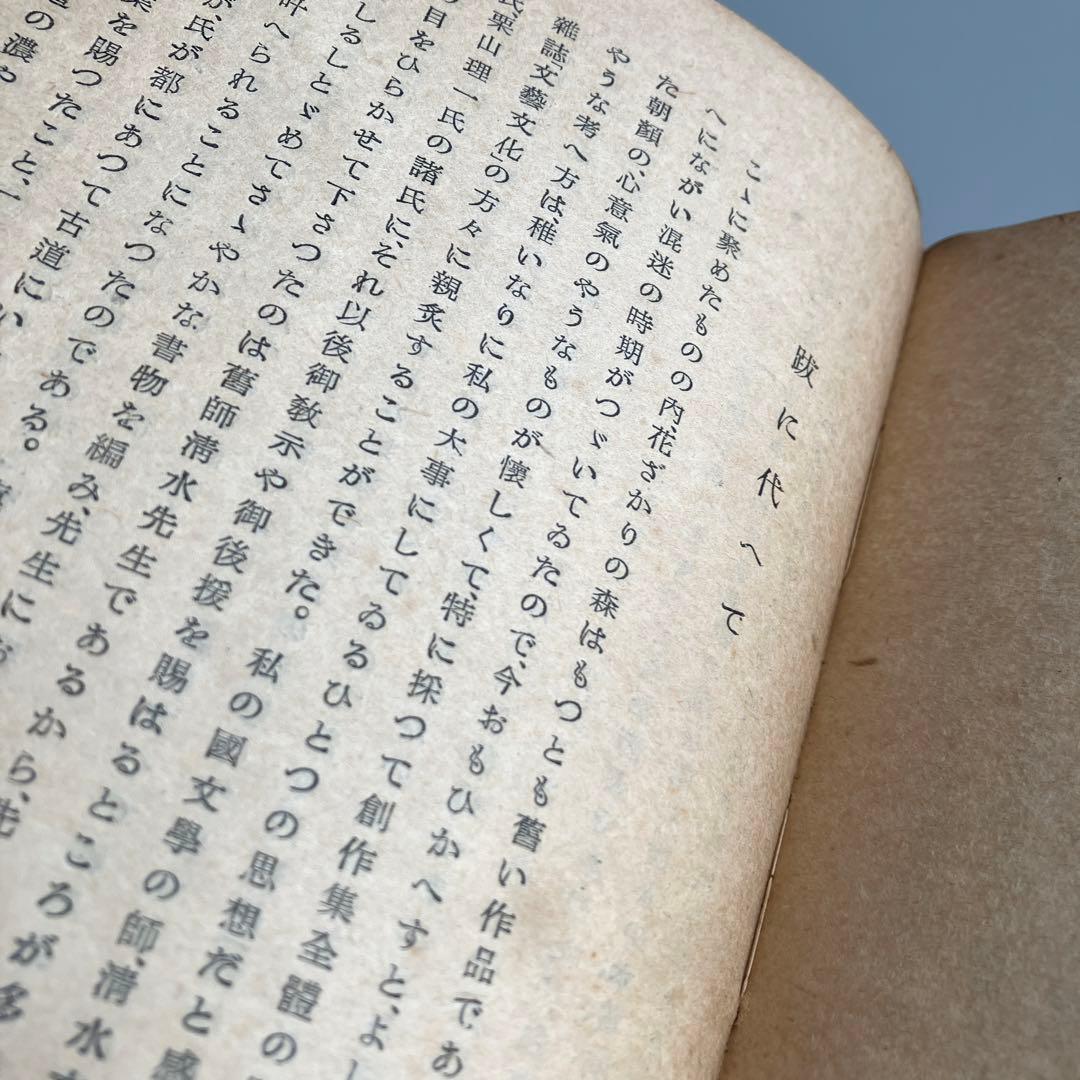 跋に代へて
こゝに聚めたものの內、花ざかりの森はもつとも舊い作品であ
へにながい混迷の時期がつゞいてゐたので、今おもひかへすと、よし
た朝顏の、心意氣のやうなものが懷しくて、特に採つて創作集全體の
やうな考へ方は、稚いなりに私の大事にしてゐるひとつの思想だと感
雜誌「文藝文化」の方々に親炙することができた。私の國文學の師、淸水
氏、栗山理一氏の諸氏に、それ以後御敎示や御後援を賜はるところが多
の目をひらかせて下さつたのは舊師淸水先生であるから、先
しるしとゞめてさゝやかな書物を編み、先生に
叶へられることになつたのである。
が、氏が都にあつて古道にい
葉を賜つたこと、一
の濃や